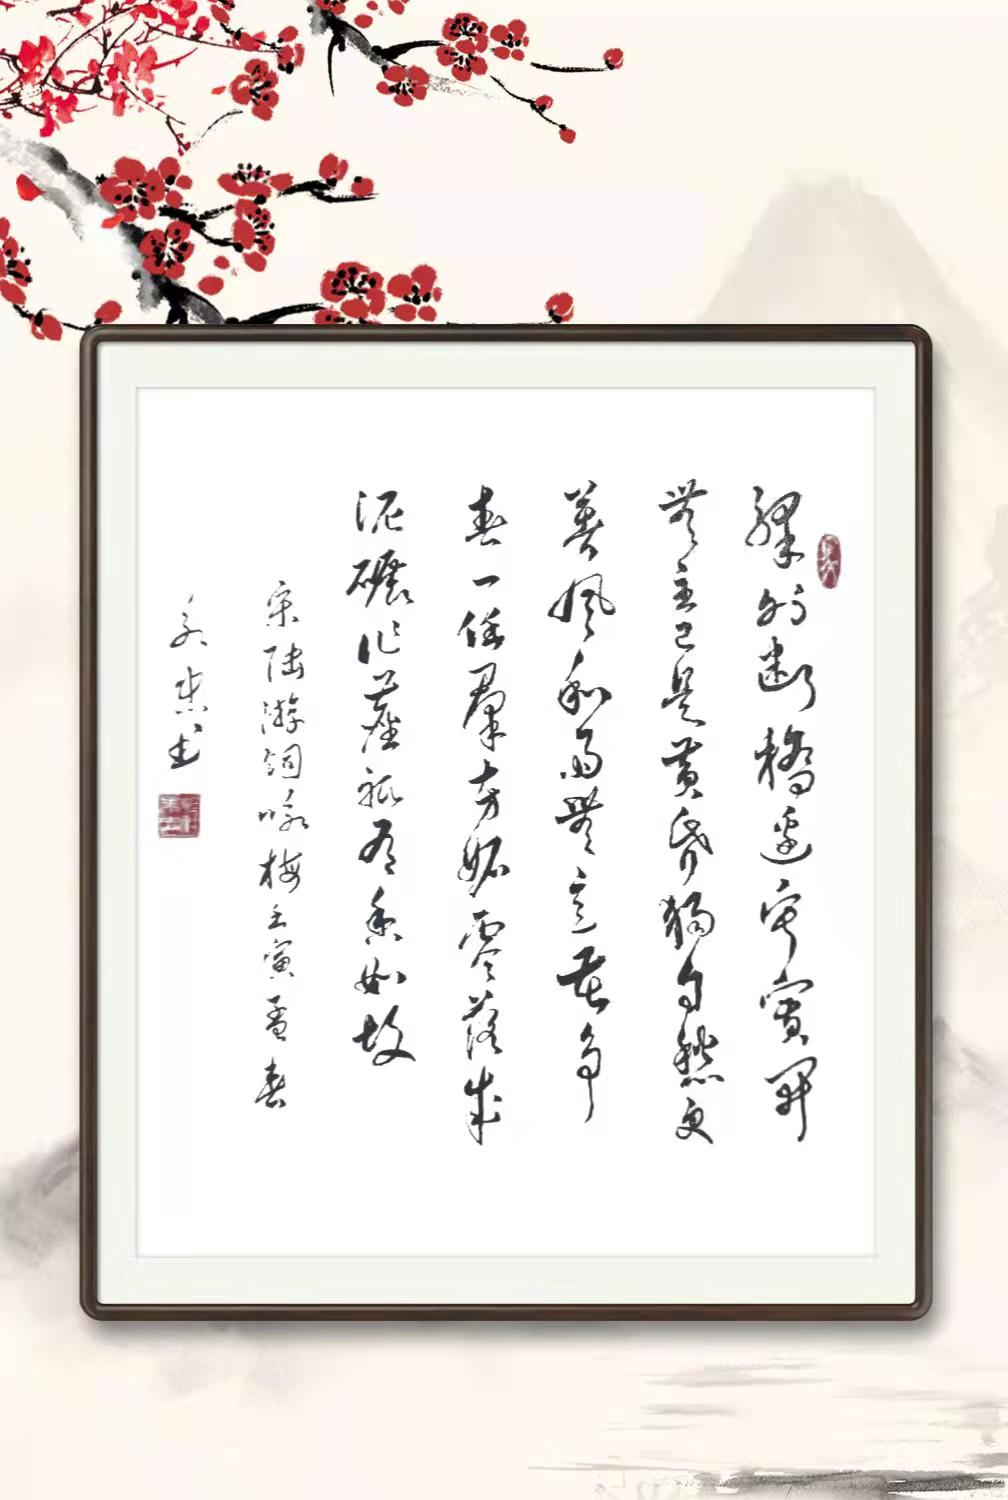 驛外斷橋邊寂寞開
無主已是黃昏獨自愁更
著風和雨無意苦爭
春一任羣芳妬零落成
泥碾作塵祇有香如故
宋陆游詞咏梅壬寅孟春
书